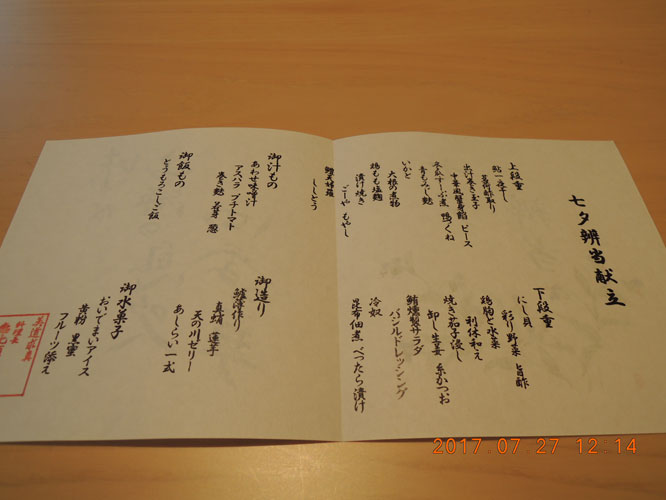 七夕辨当献立
上段重
鮎一夜干し
茗荷酢取り
出汁巻き玉子
中華風蟹身餡 ピース
冬瓜すーぷ煮 鴨つくね
青もみじ麩
いかと
大根の煮物
鶏もも塩麹
漬け焼き
ごーや もやし
鱧天婦羅
ししとう
下段重
にし貝
彩り野菜 旨酢
鶏胸と水菜
利休和え
焼き茄子浸し
卸し生姜 糸かつお
鮪燻製サラダ
バジルドレッシング
冷奴
昆布佃煮 べったら漬け
御汁もの
あわせ味噌汁
アスパラ プチトマト
巻き麩 若芽 葱
御飯もの
とうもろこしご飯
御造り
鱸薄作り
真蛸 蓮芋
天の川ゼリー
あしらい一式
御水菓子
おいでまいアイス
黄粉 黒蜜
フルーツ添え
料理長
2017.07.27 12:14